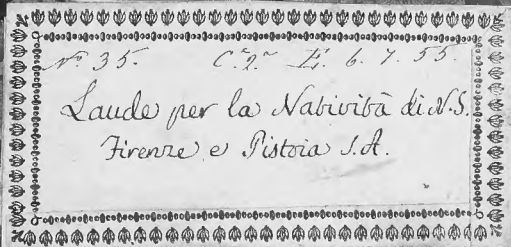 Nº 35. C.ª 2.ª E. 6. 7. 55.
Laude per la Natività di N.S.
Firenze e Pistoia S.A.